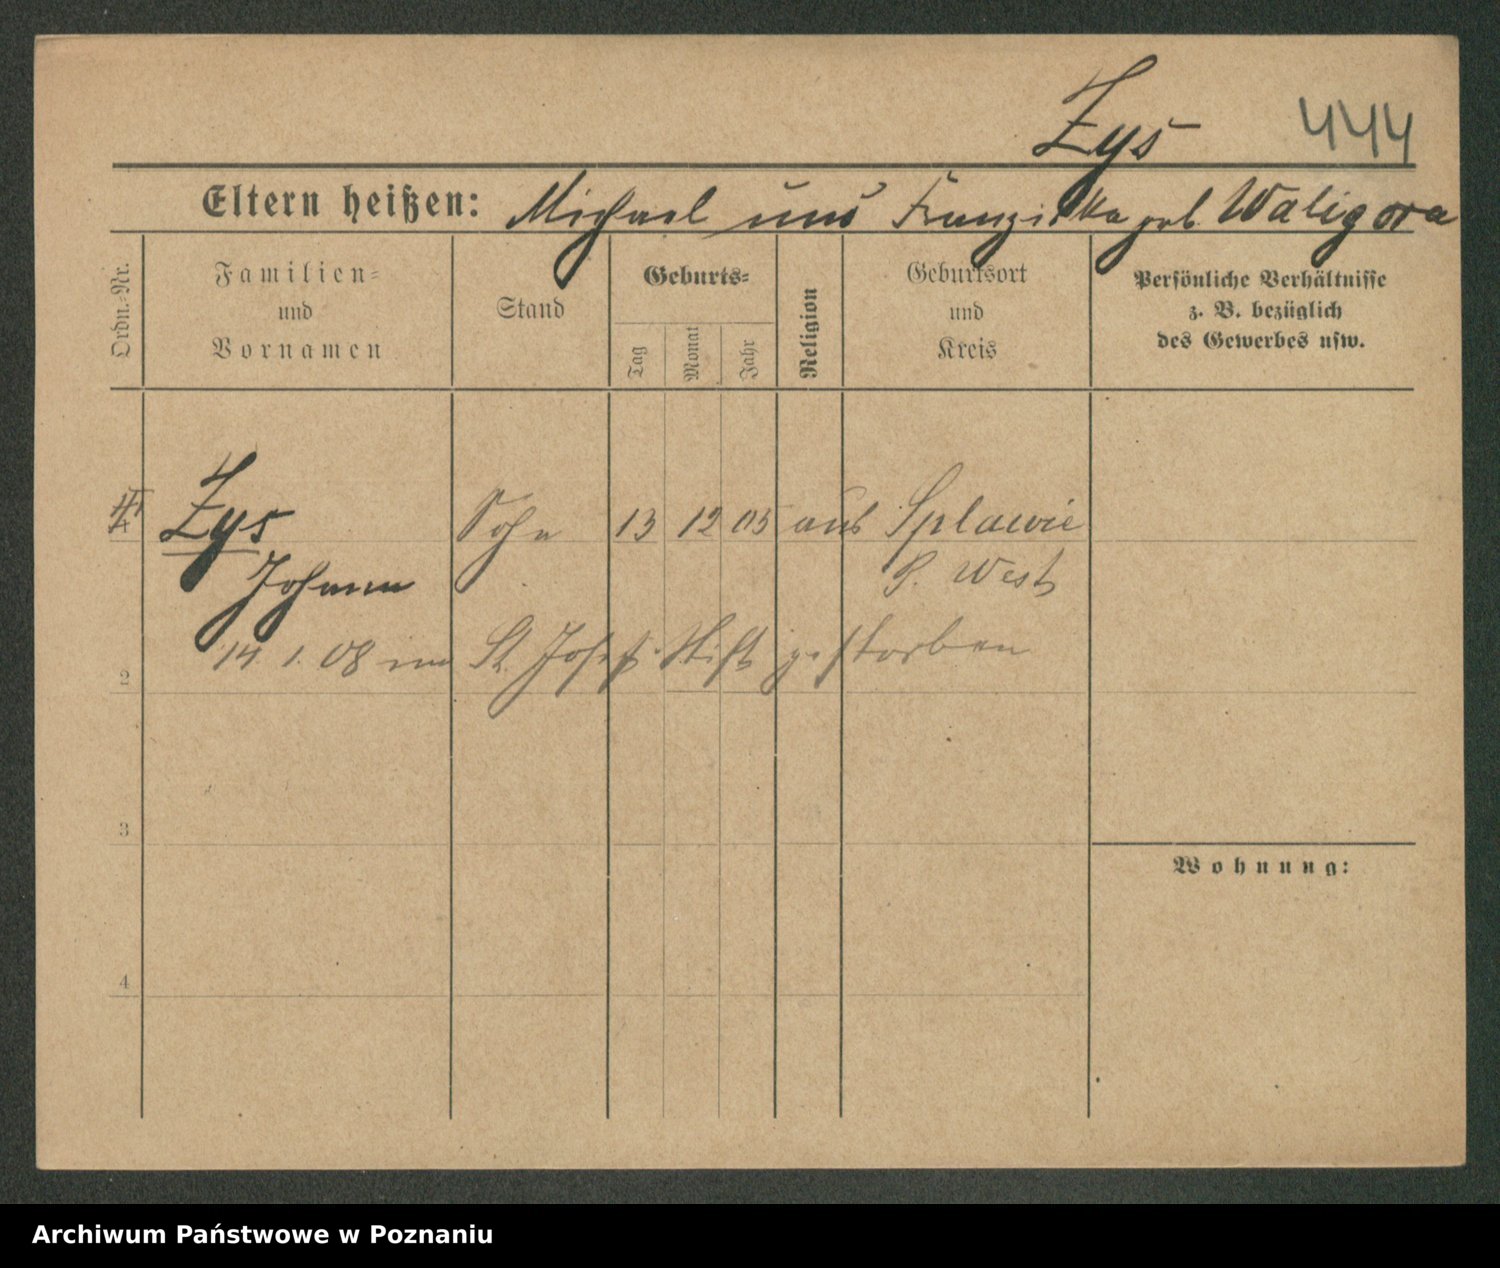 Zys 444
Eltern heißen: Michael und Franziska geb. Waligora
Ordn.-Nr.
Familien-
und
Vornamen
Stand
Geburts-
Tag
Monat
Jahr
Religion
Geburtsort
und
Kreis
Persönliche Verhältnisse
z. B. bezüglich
des Gewerbes usw.
Zys Sohn 13 12 05 aus Splawie
Johann P. West
14. 1. 08 im St. Josef Stift gestorben
2
3
Wohnung:
4
Archiwum Państwowe w Poznaniu